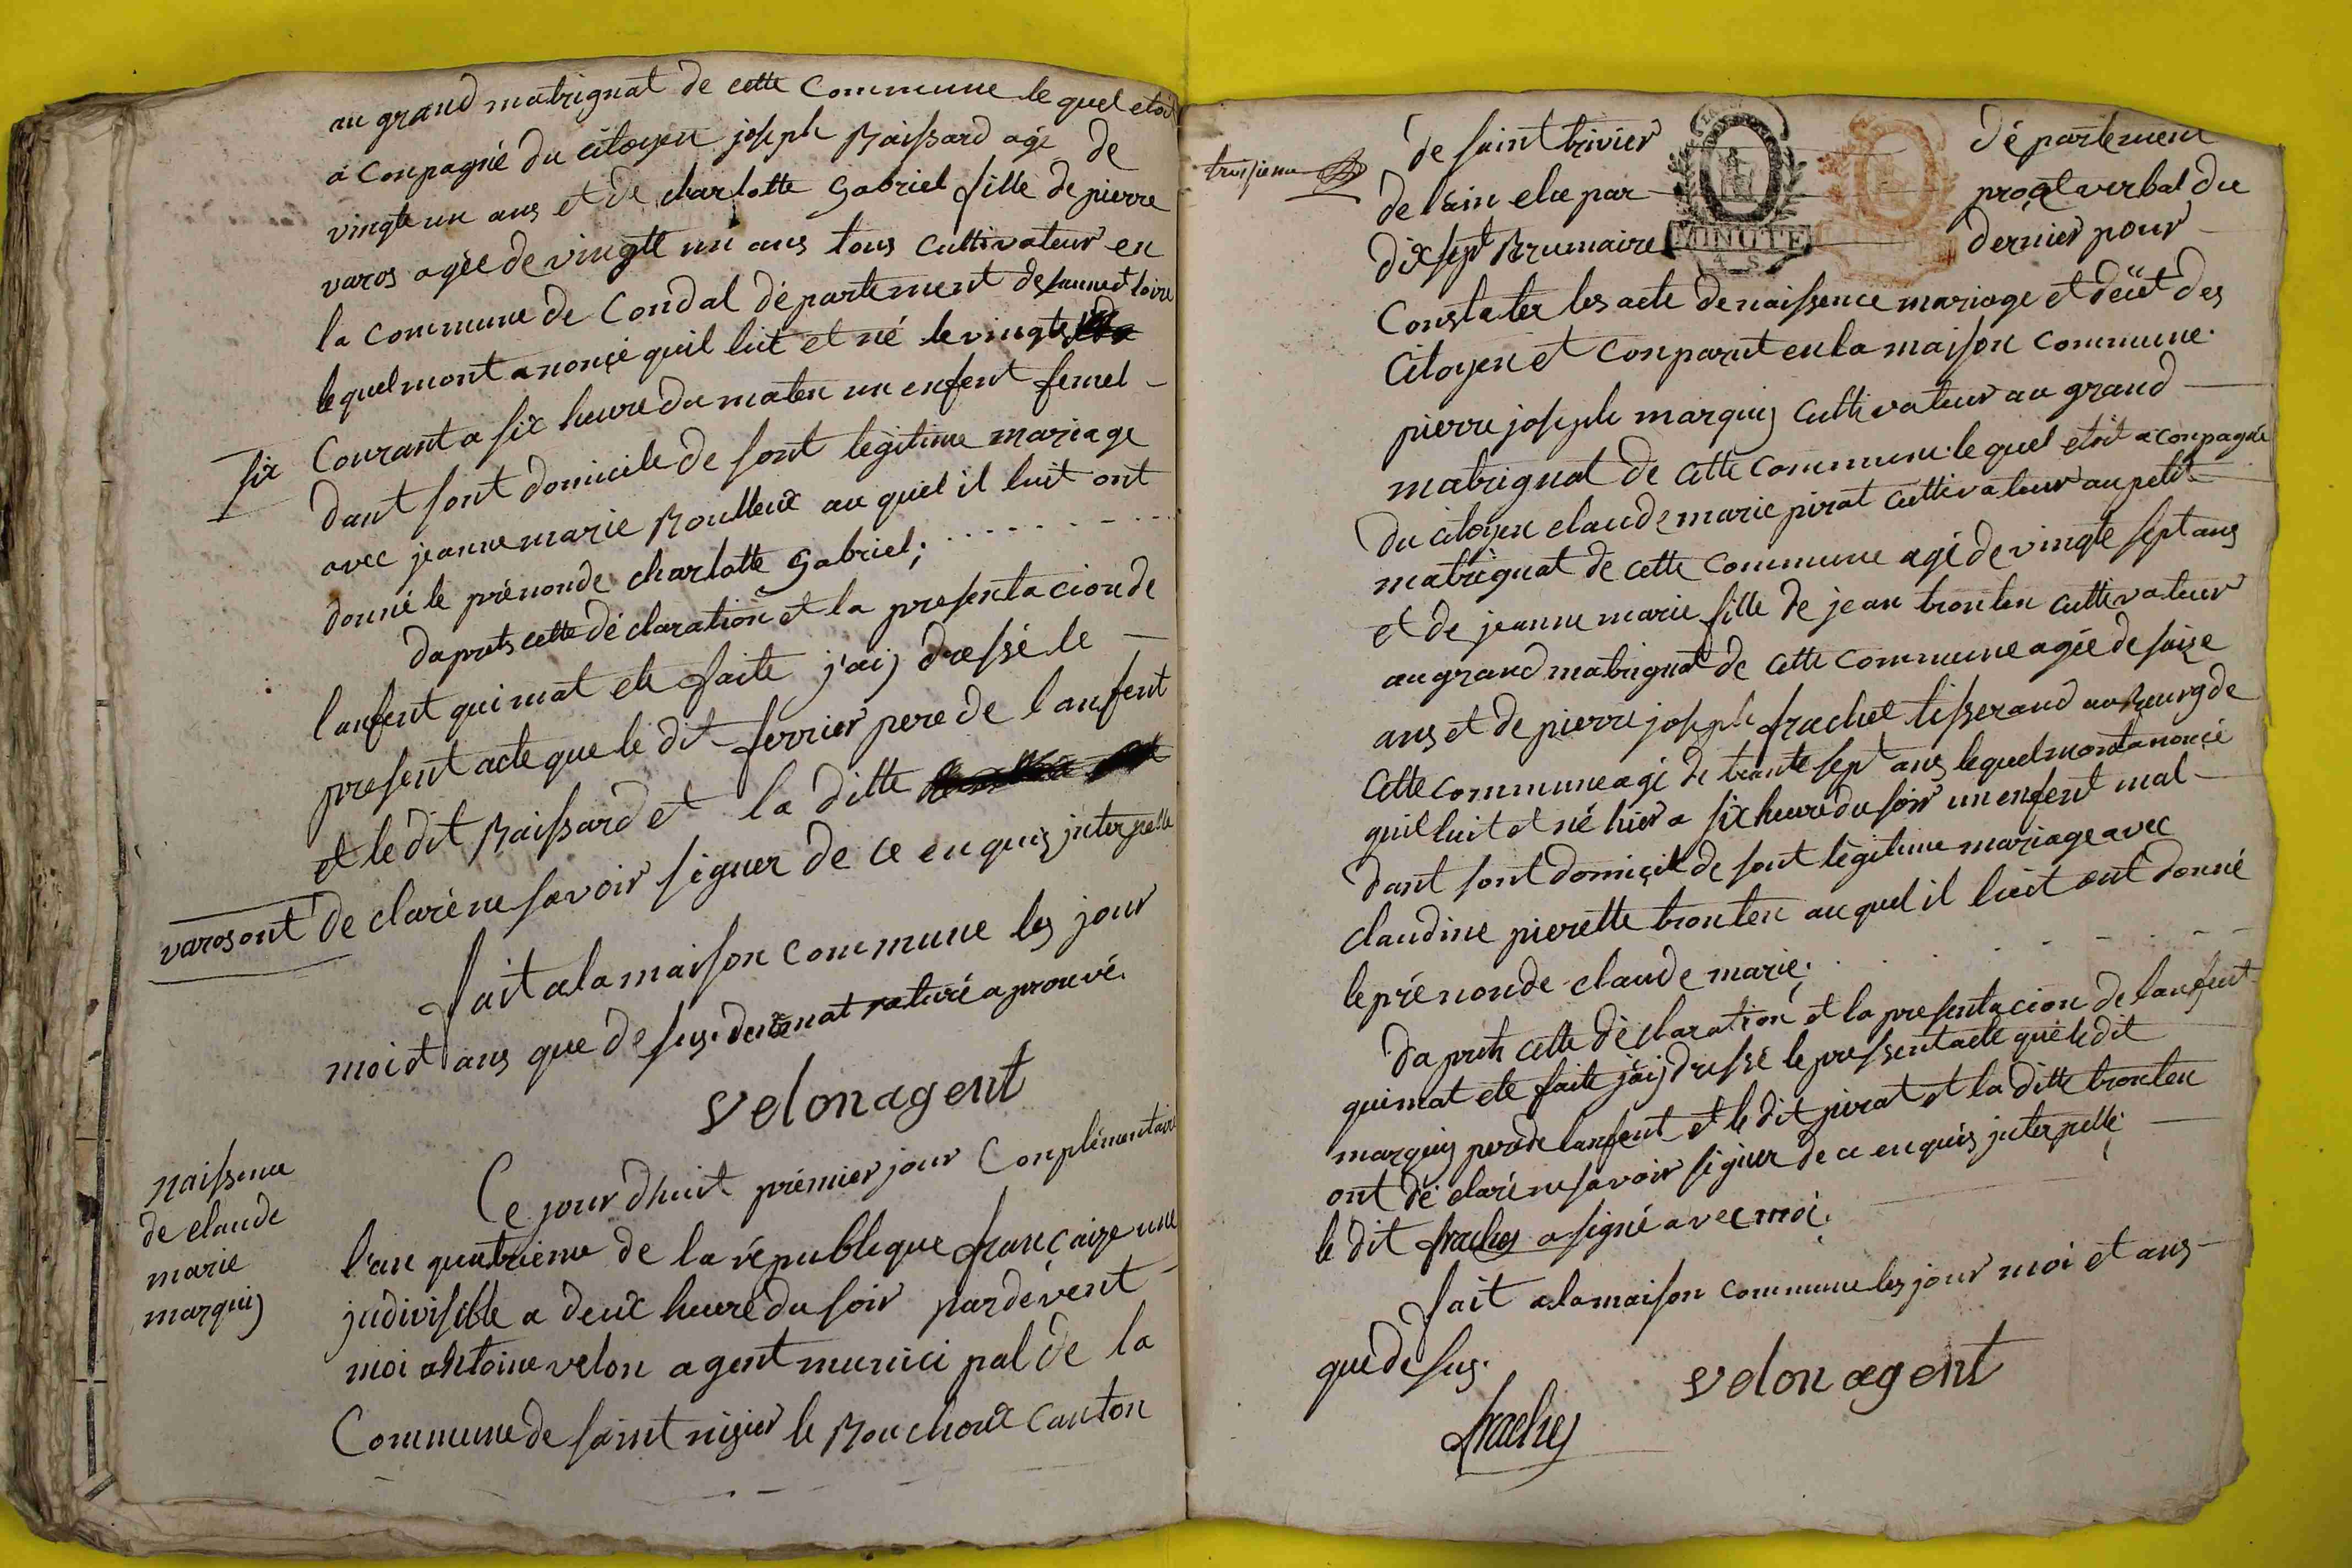 au grand matrignat de cette commune le quel etoit
a conpagné du citoyen joseph Raissard agé de
vingte un ans et de charlotte gabriel fille de pierre
varos agée de vingte un ans tous cultivateur en
la commune de Condal département de saune et loire
le quel mont anoncé quil luit et né le vingte
six
Courant a six heure du maten un enfent femel
dant sont domicile de sont légitime mariage
avec jeanne marie Roulleux au quel il luit ont
donné le prénonde charlotte gabriel;
daprets cette déclaration et la presentacion de
lanfent qui mat ete faite j'aij dressé le
present acte que le dit ferrier pere de lanfent
et le dit Raissard et la ditte
varos ont de claré ne savoir signer de ce enquis jnterpellé
fait a la maison commune les jour
moi et ans que de sus. raturé aprouvé.
velon agent
naissence
de claude
marie
marquis
Ce jour dhuit prémier jour Conplémentaire
l'an quatrieme de la république françaize une
jndivisible a deux heure du soir pardévent
moi antoine velon agent munici pal de la
Commune de saint nizier le Bouchoux canton
troisieme
de saint trivier département
de lain elu par procet verbal du
dix sept Brumaire dernier pour
MINUTE
Constater les acte de naissence mariage et décet des
Citoyen et conparut en la maison commune.
pierre joseph marquis cultivateur au grand
matrignat de cette commune. le quel etoit a conpagné
du citoyen claude marie pirat cultivateur au petit
matrignat de cette commune agé de vingte sept ans
et de jeanne marie fille de jean tronten cultivateur
au grand matrignat de cette commune agée de saize
ans et de pierre joseph frachet tisserand au Bourg de
cette commune agé de trante sept ans le quel mont anoncé
quil luit et né hier a six heure du soir un enfent mal
dant sont domicile de sont légitime mariage avec
claudine pierette tronten au quel il luit ont donné
le prénonde claude marie;
daprets cette déclaration et la presentacion de lanfent
qui mat ete faite j'aij dressé le pressent acte que le dit
marquis pere de lanfent et le dit pirat et la ditte tronten
ont dé claré ne savoir signer de ce enquis jnterpellé
le dit frachey a signé avec moi.
fait a la maison commune les jour moi et ans
que de sus.
velon agent
frachey